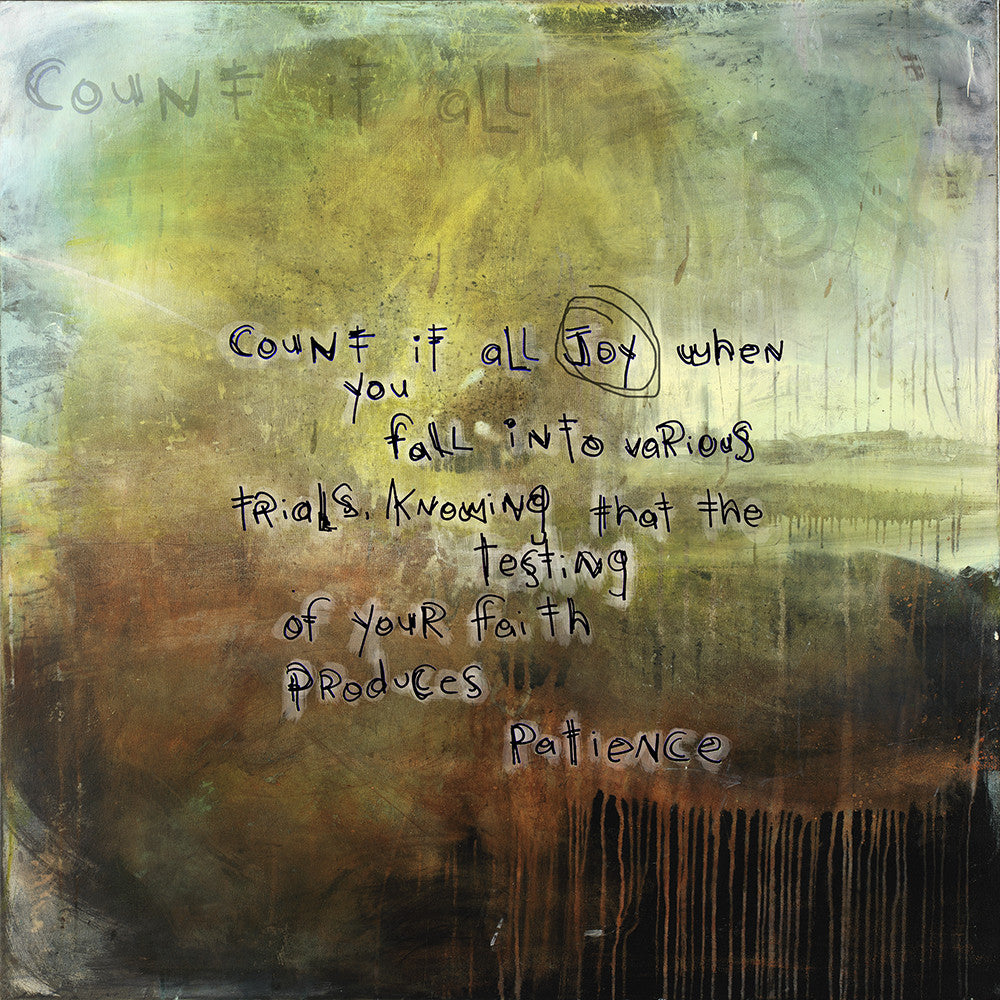 COUNT iT aLL
JOY
COUNT iT aLL JOY when
you
faLL iNTo vaRious
TRials. KNowiNg that the
TesTiNg
of youR faiTh
PRoduCes
PaTieNCe